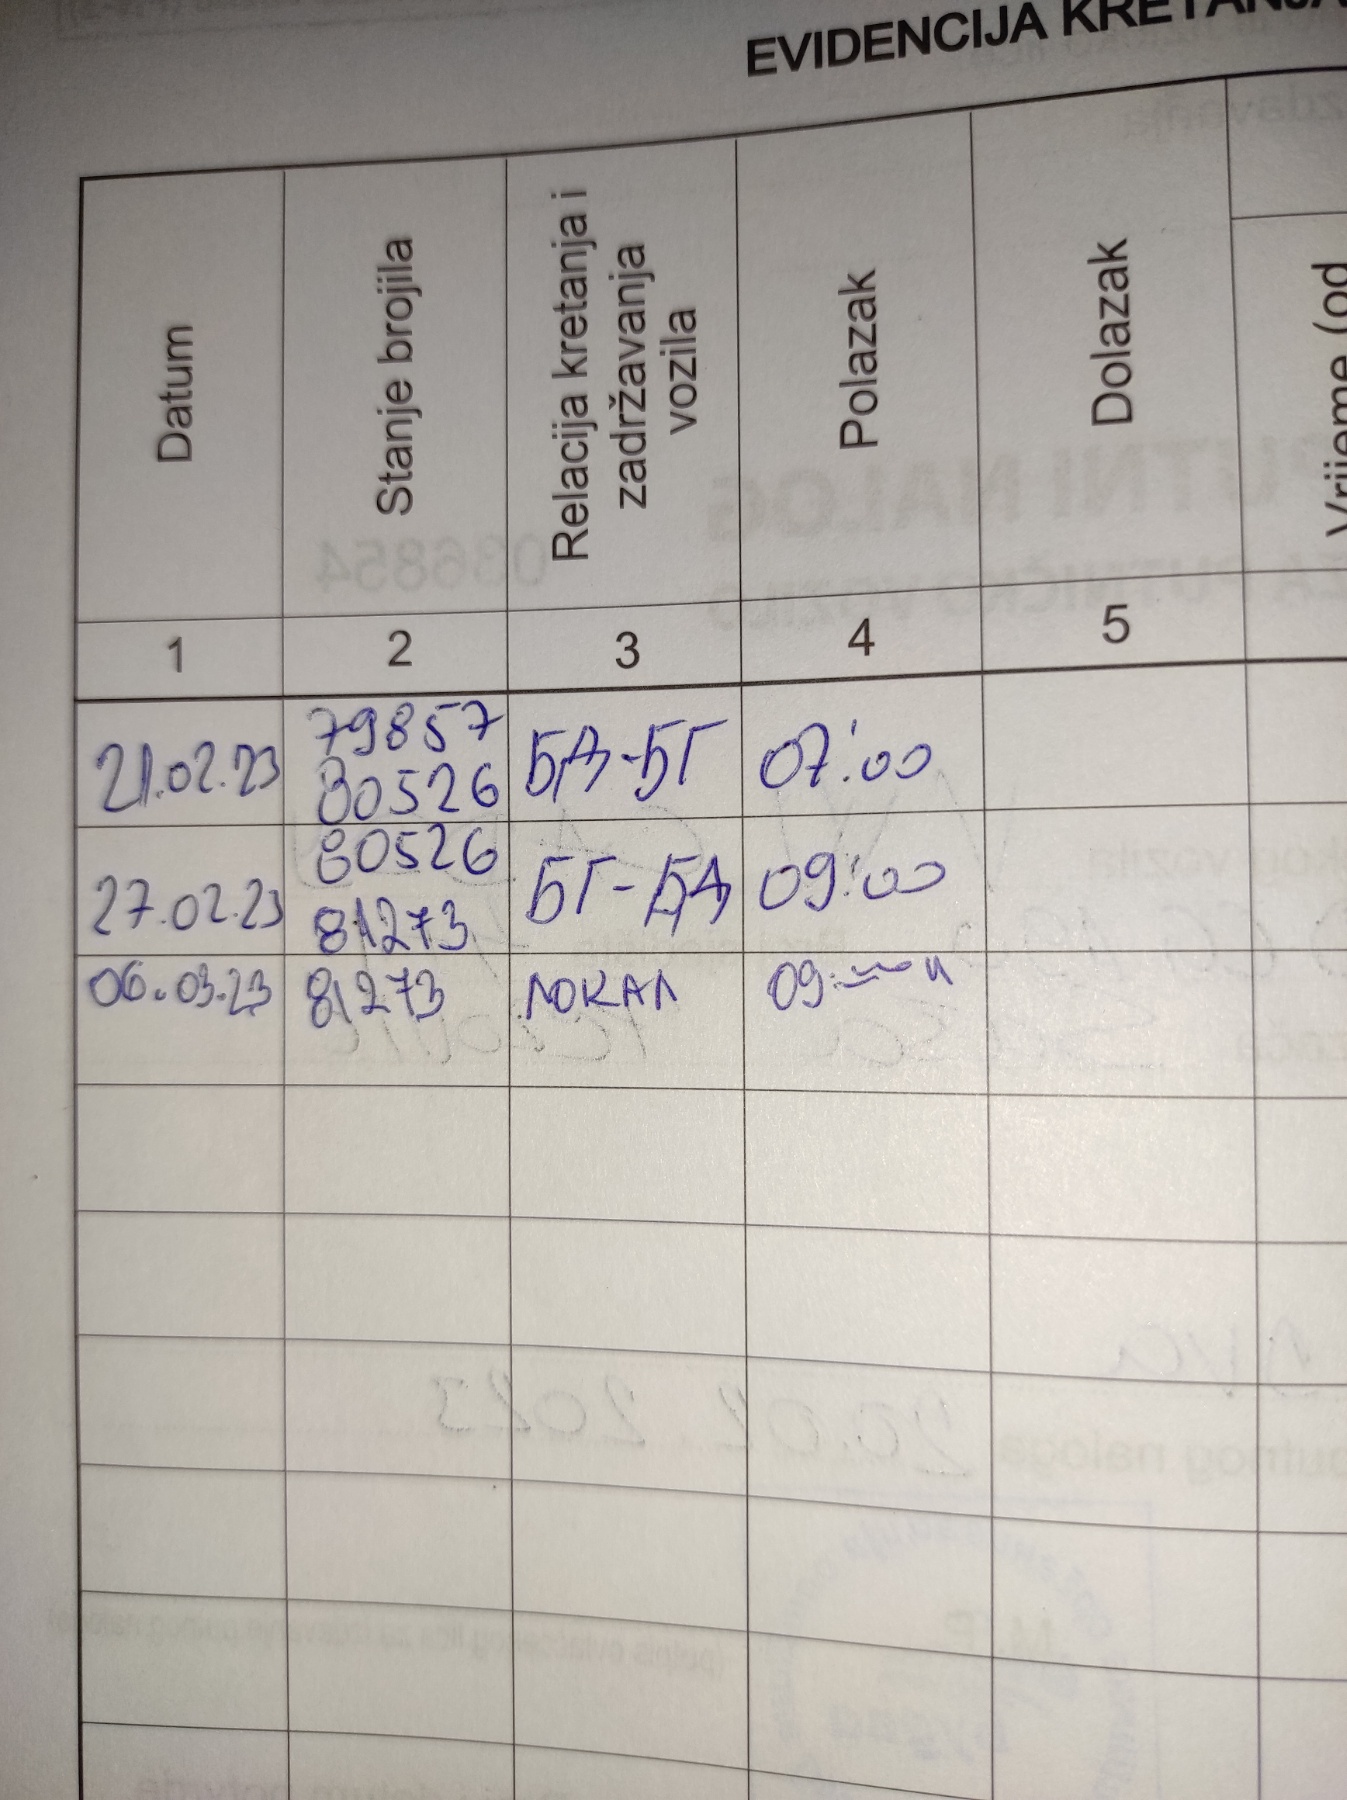 EVIDENCIJA KRETANJA
Datum
Stanje brojila
Relacija kretanja i
zadržavanja
vozila
Polazak
Dolazak
Vrijeme (od
1 2 3 4 5
21.02.23 79857 БД-БГ 07:00
80526
27.02.23 80526 БГ-БД 09:00
81273
06.03.23 81273 ЛОКАЛ 09: